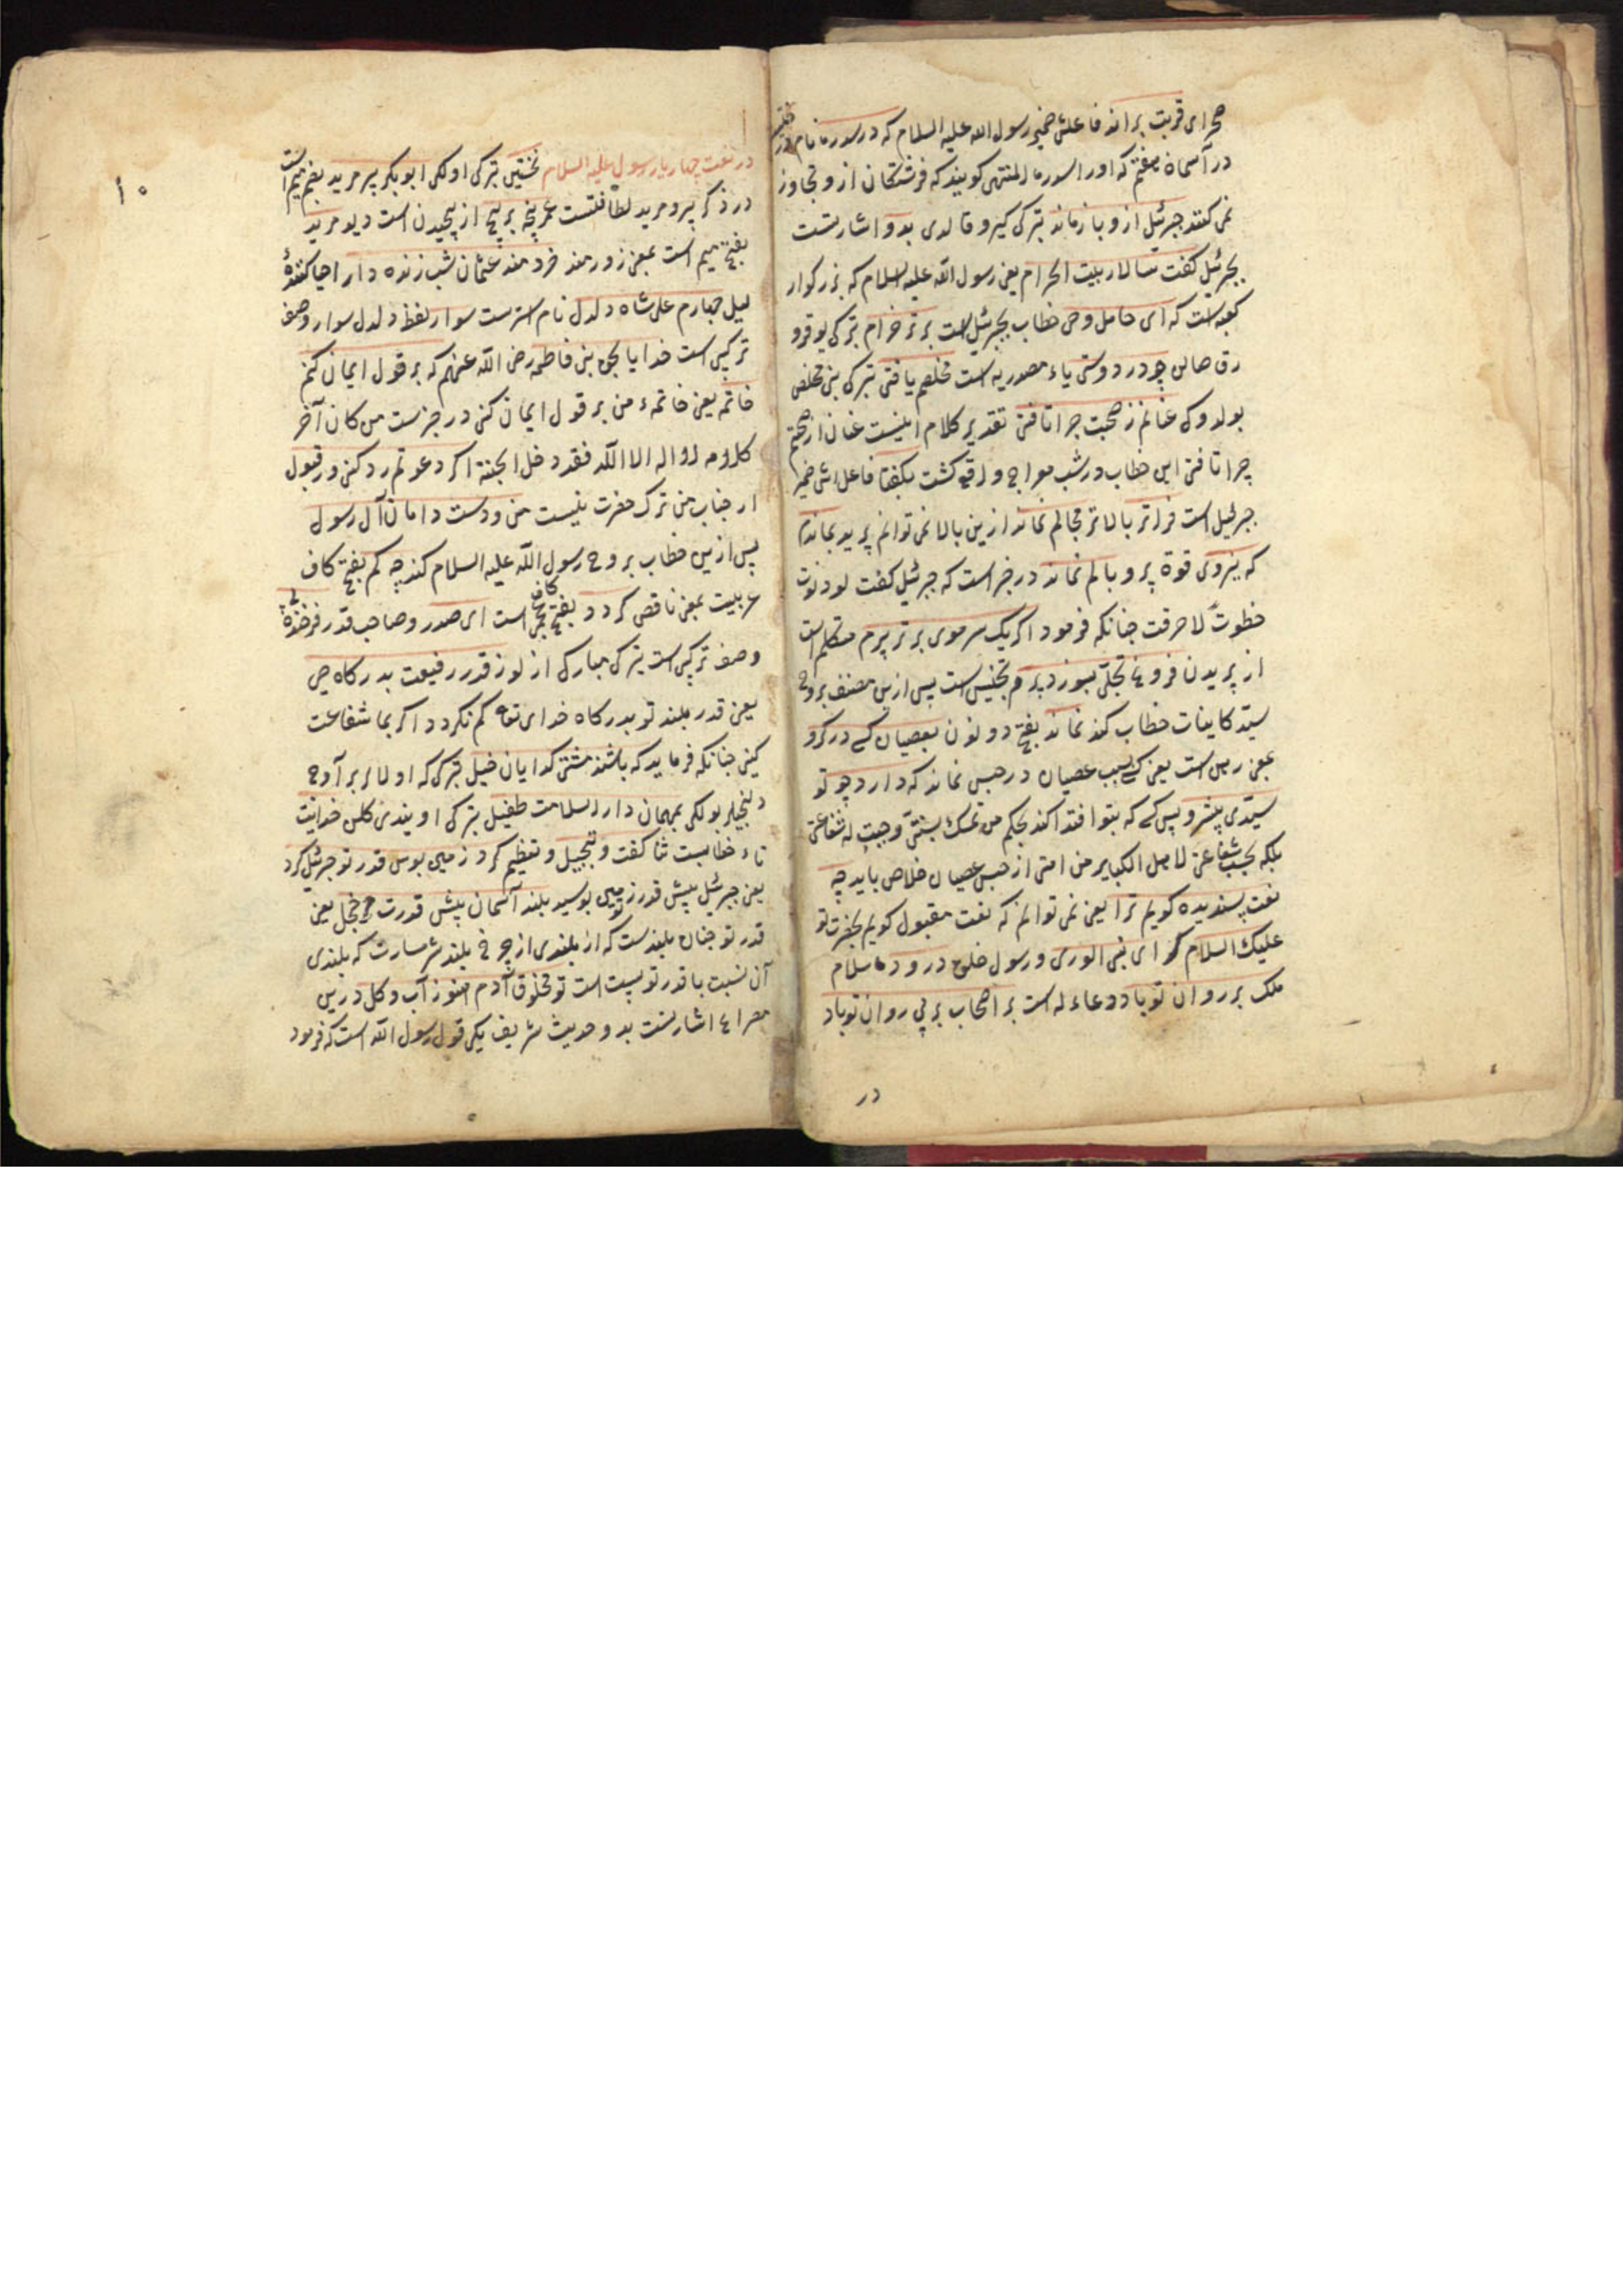 صحرای قربت براند فاعلش ضمیر رسول الله علیه السلام که در سدره نام
در آسمان هفتم که اورا سدرة المنتهی کویند که فرشتکان ازو تجاوز
نمی کنند جبرئیل ازو باز ماند ترکی کیرو قالدی بدو اشارتست
بجبرئیل کفت سالار بیت الحرام یعنی رسول الله علیه السلام که بزرکوار
کعبه است که ای حامل وحی خطاب بجبرئیل است برتر خرام ترکی یوقرو
صالن چو در دوستی یاء مصدریه است مخلصم یافتی ترکی بنی مخلص
بولدوک عنانم ز صحبت چرا تافتی تقدیر کلام اینست عنان از صحبتم
چرا تافتی این خطاب در شب معراج واقع کشت بکفتا فاعلش ضمیر
جبرئیل است فراتر بالاتر مجالم نماند ازین بالا نمی توانم پرید بماندم
که نیروی قوة پرو بالم نماند در خبر است که جبرئیل کفت لو دنوت
خطوت لاحرقت چنانکه فرمود اکر یک سر موی برتر پرم متکلم است
از پریدن فروغ تجلی بسوزد پرم تجنیس است پس ازین مصنف بروح
سید کاینات خطاب کند نماند بفتح دو نون بعصیان کسی در کرو
بمعنی رهن است یعنی کسی بسبب عصیان در حبس نماند که دارد چو تو
سیدی پیشرو پس کسی که بتو اقتدا کند بحکم من تمسک بسنتی وجبت له شفاعتی
بلکه بحسب شفاعتی لاهل الکبایر من امتی از حبس عصیان خلاص یابد چه
نعت پسندیده کویم ترا یعنی نمی توانم که نعت مقبول کویم بحضرت تو
علیک السلام ای نبی الوری و رسول خلق درود سلام
ملک بر روان تو باد دعاء له است بر اصحاب بر پی روان تو باد
در
۱۰
در نعت چهار یار رسول علیه السلام نخستین ترکی اولکی ابوبکر پیر مرید بضم میم است
در ذکر پیر و مرید لطافتست عمر پنجه بر پیچ از پیچیدن است دیو مرید
بفتح میم است بمعنی زورمند خردمند عثمان شب زنده دار احیا کننده
لیل چهارم علی شاه دلدل نام استرست سوار لفظ دلدل سوار وصف
ترکیبی است خدایا بحق بنی فاطمه رضی الله عنهم که بر قول ایمان کنم
خاتمه یعنی خاتمهٔ من بر قول ایمان کنی در خبرست من کان آخر
کلامه لا اله الا الله فقد دخل الجنة اکر دعوتم رد کنی ور قبول
از جناب من ترک حضرت نیست من و دست دامان آل رسول
پس ازین خطاب بروح رسول الله علیه السلام کند چه کم بفتح کاف
عربیت بمعنی ناقص کردد بفتح کاف عجمی است ای صدر و صاحب قدر فرخنده پی
وصف ترکیبی است ترکی مبارک از لوز قدر رفیعت بدرکاه حی
یعنی قدر بلند تو بدرکاه خدای تعا کم نکردد اکر بما شفاعت
کنی چنانکه فرماید که باشند مشتی کدایان خیل ترکی که اولالر بر آوج
دیلنجیلر بولکی بمهمان دار السلامت طفیل ترکی اویندی کلن خدایت
تاء خطابست ثنا کفت و تبجیل و تعظیم کرد زمین بوس قدر تو جبرئیل کرد
یعنی جبرئیل پیش قدر تو زمین بوسید بلند آسمان پیش قدرت خجل یعنی
قدر تو چنان بلندست که از بلندی او چرخ بلند شرمسارست که بلندی
آن نسبت با قدر تو پست است تو مخلوق آدم هنوز آب و کل درین
مصراع اشارتست بدو حدیث شریف یکی قول رسول الله است که فرمود